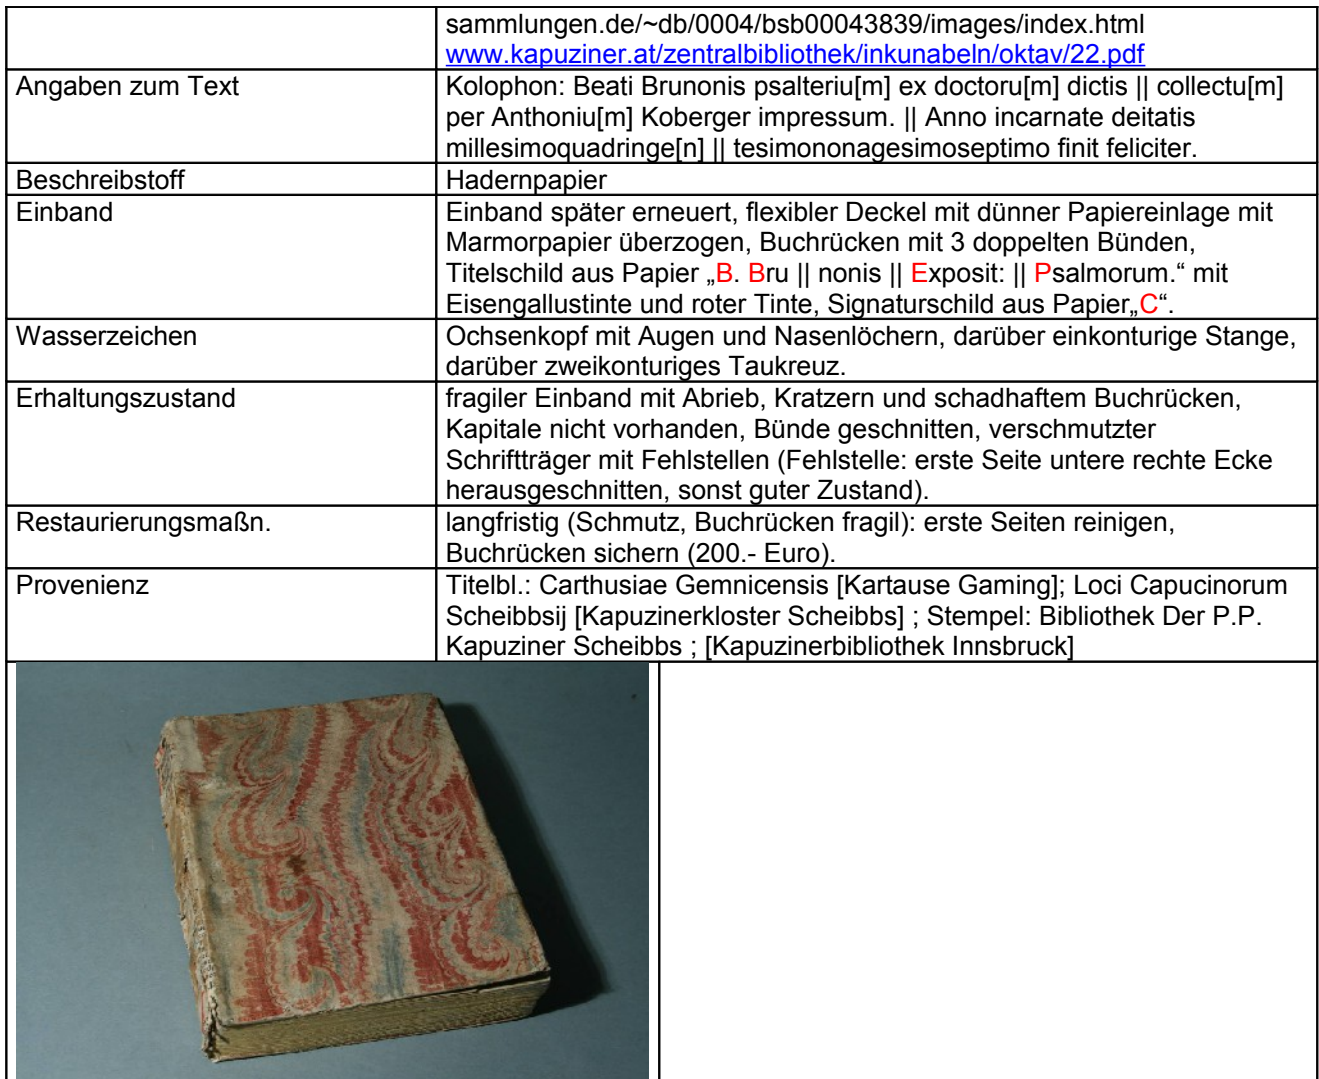 sammlungen.de/~db/0004/bsb00043839/images/index.html
www.kapuziner.at/zentralbibliothek/inkunabeln/oktav/22.pdf
Angaben zum Text
Kolophon: Beati Brunonis psalteriu[m] ex doctoru[m] dictis || collectu[m]
per Anthoniu[m] Koberger impressum. || Anno incarnate deitatis
millesimoquadringe[n] || tesimononagesimoseptimo finit feliciter.
Beschreibstoff
Hadernpapier
Einband
Einband später erneuert, flexibler Deckel mit dünner Papiereinlage mit
Marmorpapier überzogen, Buchrücken mit 3 doppelten Bünden,
Titelschild aus Papier „B. Bru || nonis || Exposit: || Psalmorum.“ mit
Eisengallustinte und roter Tinte, Signaturschild aus Papier„C“.
Wasserzeichen
Ochsenkopf mit Augen und Nasenlöchern, darüber einkonturige Stange,
darüber zweikonturiges Taukreuz.
Erhaltungszustand
fragiler Einband mit Abrieb, Kratzern und schadhaftem Buchrücken,
Kapitale nicht vorhanden, Bünde geschnitten, verschmutzter
Schriftträger mit Fehlstellen (Fehlstelle: erste Seite untere rechte Ecke
herausgeschnitten, sonst guter Zustand).
Restaurierungsmaßn.
langfristig (Schmutz, Buchrücken fragil): erste Seiten reinigen,
Buchrücken sichern (200.- Euro).
Provenienz
Titelbl.: Carthusiae Gemnicensis [Kartause Gaming]; Loci Capucinorum
Scheibbsij [Kapuzinerkloster Scheibbs] ; Stempel: Bibliothek Der P.P.
Kapuziner Scheibbs ; [Kapuzinerbibliothek Innsbruck]